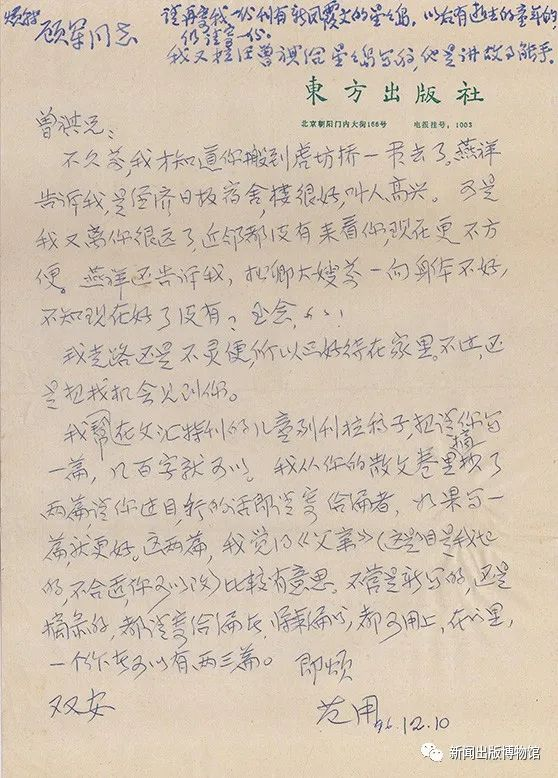 顾军同志
请再寄我一份刊有新凤霞文的星岛，以后有逝去的童年的，
仍请寄一份。
我又推汪曾祺给星岛写稿，他是讲故事能手。
東方出版社
北京朝阳门内大街166号 电报挂号：1003
曾祺兄：
不久前，我才知道你搬到虎坊桥一带去了。燕祥
告诉我，是经济日报宿舍，楼很好，叫人高兴。可是
我又离你很远了，近邻都没有来看你，现在更不方
便。燕祥还告诉我，松卿大嫂前一向身体不好，
不知现在好了没有？至念，
我走路还是不灵便，所以只好待在家里。不过，还
是想找机会见到你。
我帮在文汇特刊的儿童副刊拉稿子，想请你写
一篇，几百字就可以。我从你的散文卷里摘抄了
两篇，请你过目，行的话即请寄给编者，如果写一
篇就更好。这两篇，我觉得《父亲》（这题目是我加
的，不合适，你可以改）比较有意思。不管是新写的，还是
摘录的，都请寄给编者，归编，都可用上，在那里，
一个作者可以有两三篇。 即颂
双安
范用
96.12.10
新闻出版博物馆